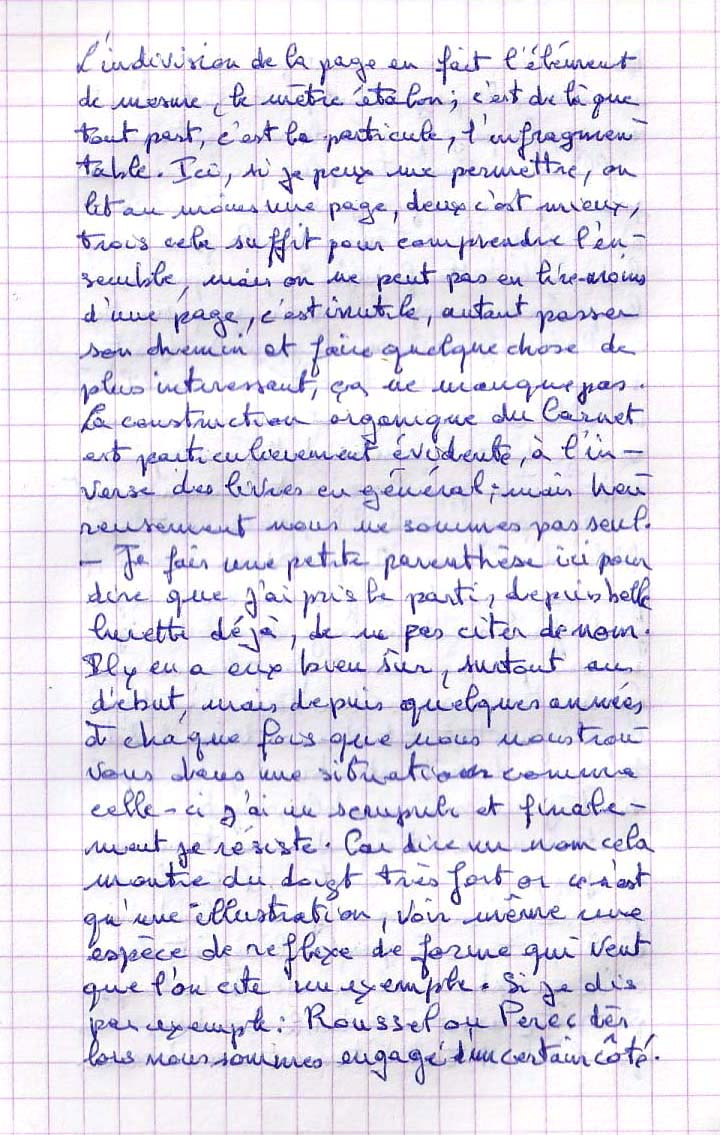 L'indivision de la page en fait l'élément
de mesure, le mètre étalon; c'est de là que
tout part, c'est la particule, l'infragmen
table. Ici, si je peux me permettre, on
lit au moins une page, deux c'est mieux,
trois cela suffit pour comprendre l'en-
semble, mais on ne peut pas en lire moins
d'une page, c'est inutile, autant passer
son chemin et faire quelque chose de
plus interessant, ça ne manque pas.
La construction organique du Carnet
est particulièrement évidente, à l'in-
verse des livres en général; mais heu
reusement nous ne sommes pas seul.
- Je fais une petite parenthèse ici pour
dire que j'ai pris le parti, depuis belle
lurette déjà, de ne pas citer de nom.
Il y en a eux bien sûr, surtout au
début, mais depuis quelques années
à chaque fois que nous nous trou
vons dans une situation comme
celle-ci j'ai un scrupule et finale-
ment je résiste. Car dire un nom cela
montre du doigt très fort or ce n'est
qu'une illustration, voir même une
espèce de reflexe de forme qui veut
que l'on cite un exemple. Si je dis
par exemple: Roussel ou Perec dès
lors nous sommes engagé d'un certain côté.